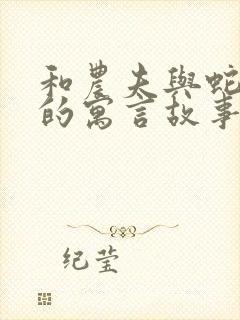 和農夫與蛇
的寓言故事
纪莹